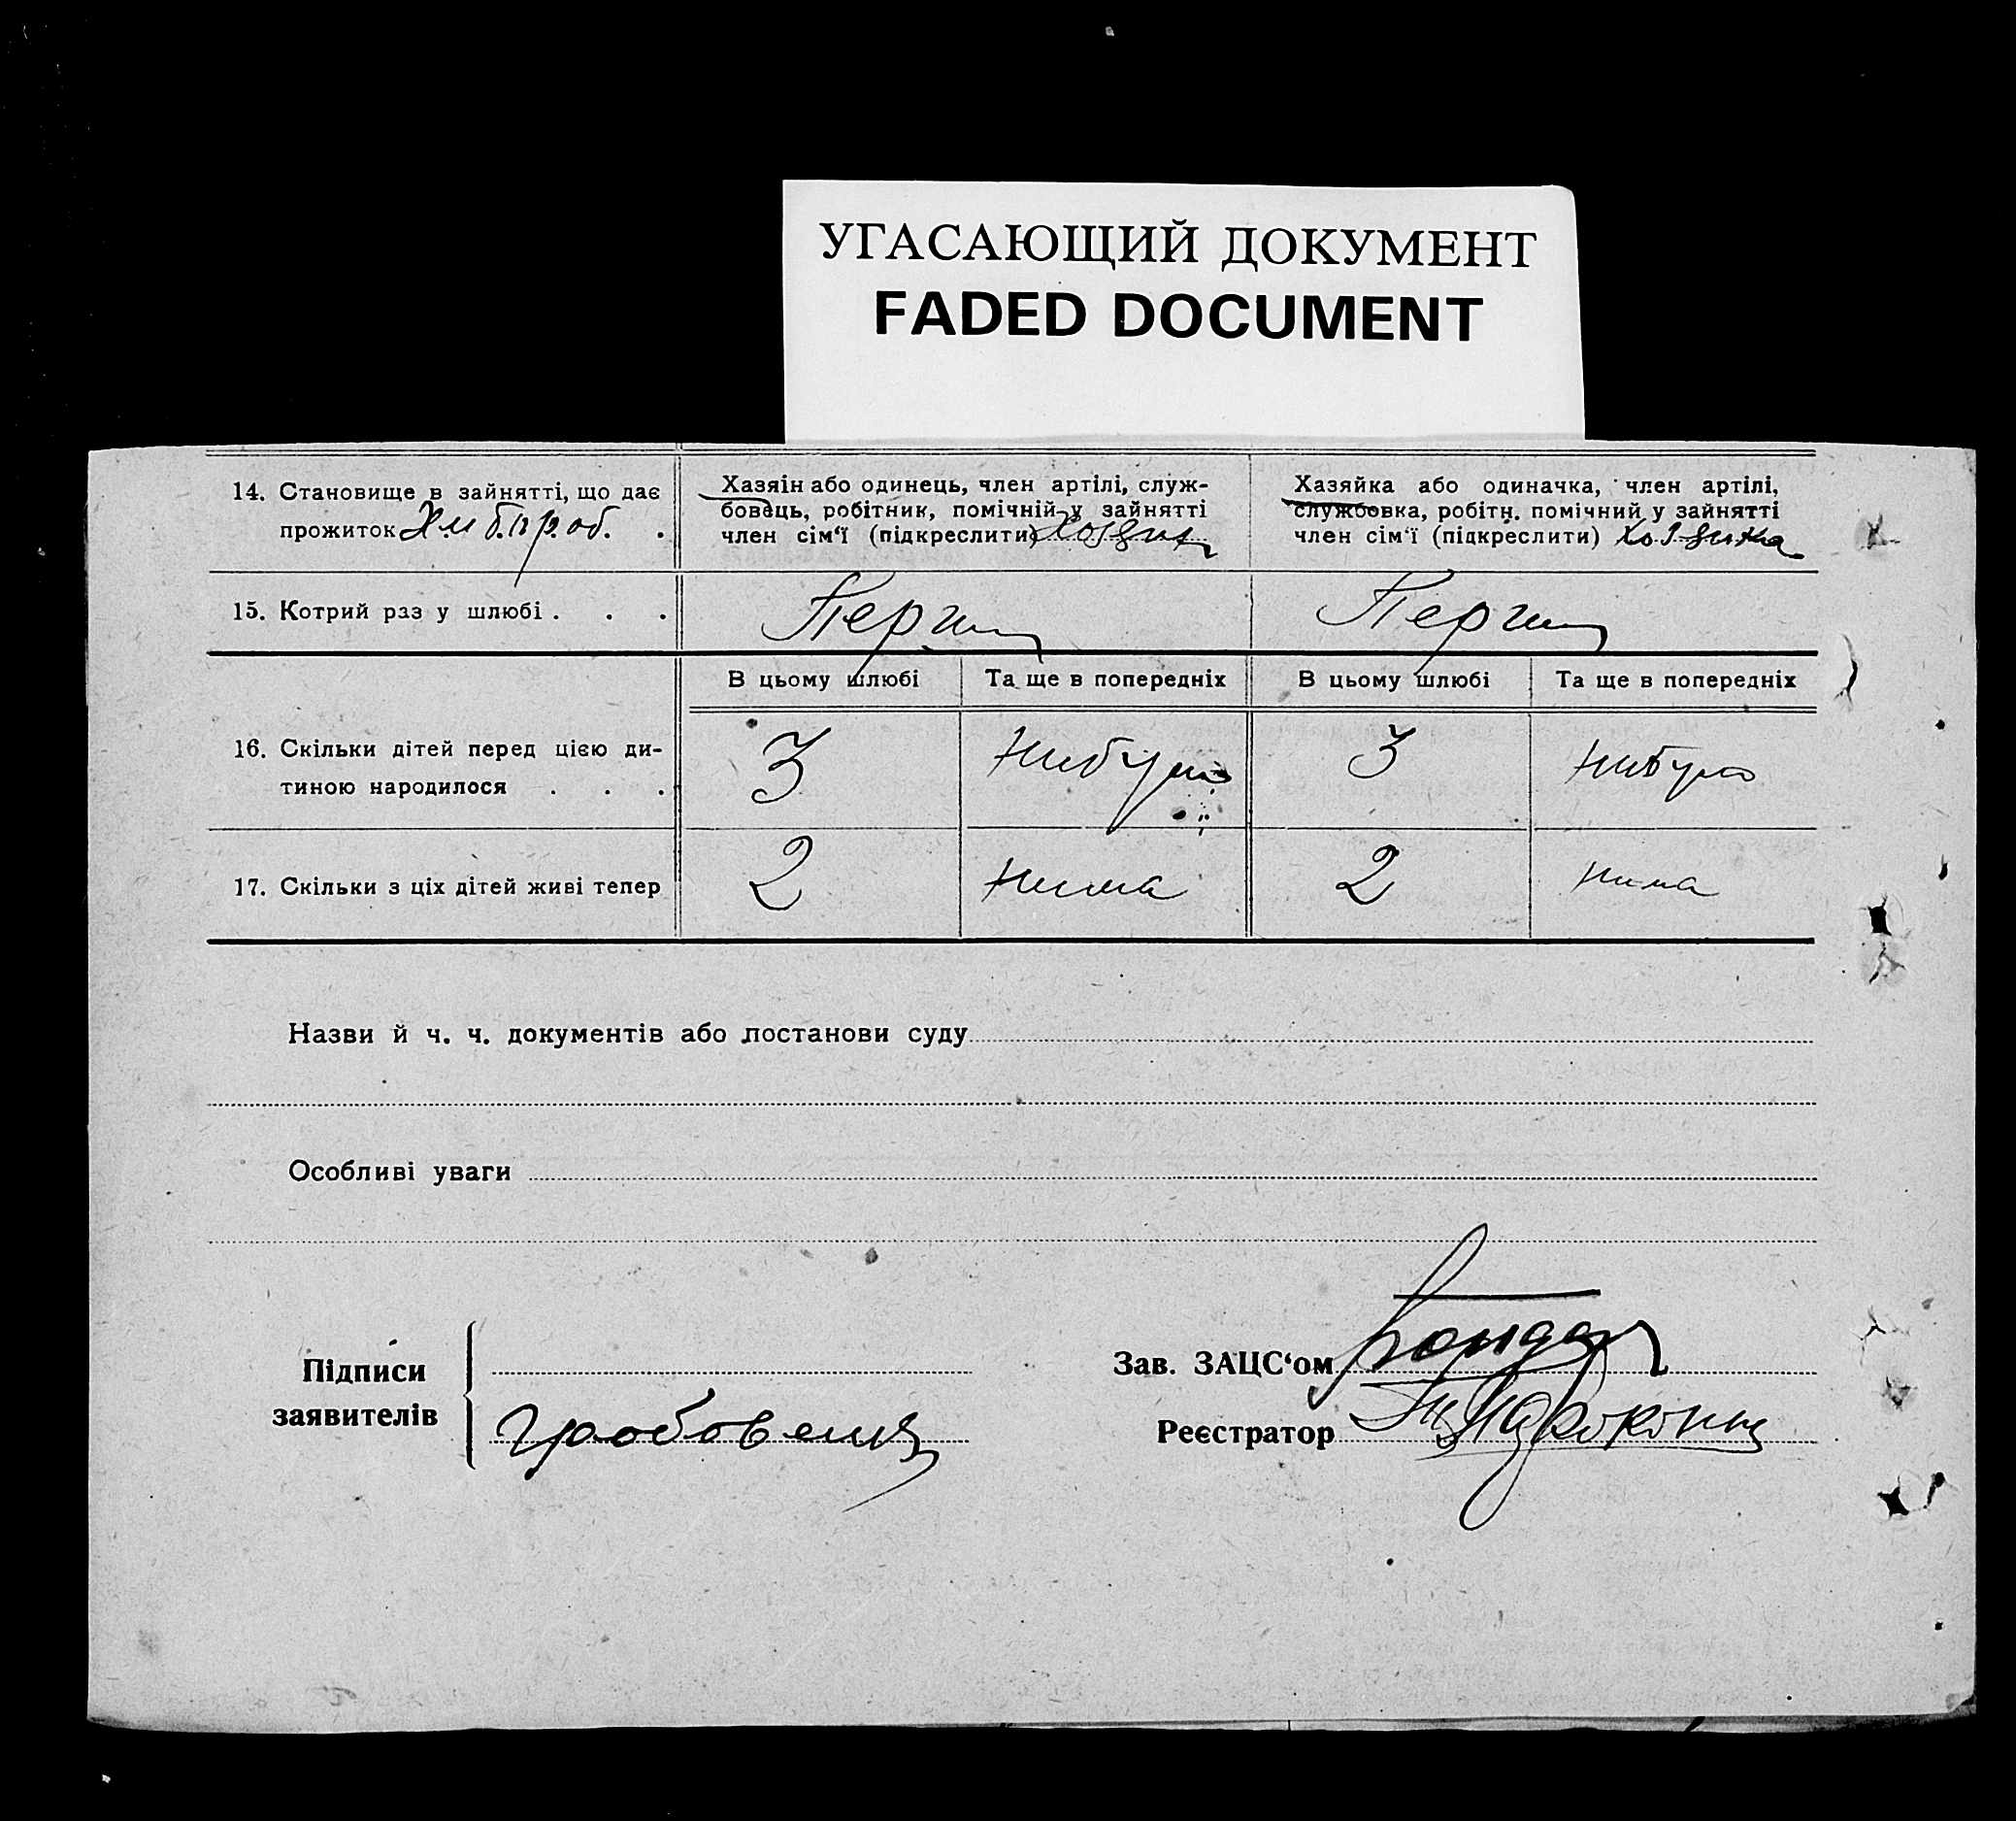 УГАСАЮЩИЙ ДОКУМЕНТ
FADED DOCUMENT
14. Становище в зайнятті, що дає
прожиток Хлибороб. .
Хазяін або одинець, член артілі, служ-
бовець, робітник, помічній у зайнятті
член сім'ї (підкреслити) Хозяин
Хазяйка або одиначка, член артілі,
службовка, робітн. помічний у зайнятті
член сім'ї (підкреслити) Хозяика
15. Котрий раз у шлюбі . . .
Перши
Перши
В цьому шлюбі
Та ще в попередніх
В цьому шлюбі
Та ще в попередніх
16. Скільки дітей перед цією ди-
тиною народилося . . .
3
нибуло
3
нибуло
17. Скільки з ціх дітей живі тепер
2
нима
2
нима
Назви й ч. ч. документів або постанови суду
Особливі уваги
Підписи
заявителів
Зав. ЗАЦС'ом Бондар
Реєстратор